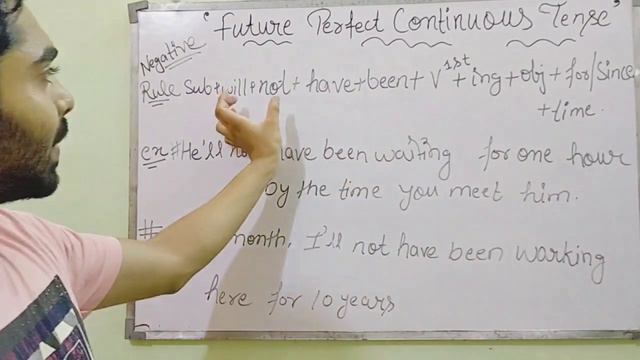 "Future Perfect Continuous Tense"
Negative
Rule Sub+will+not+have+been+V1st+ing+obj+for/Since
+time.
ex #He'll have been waiting for one hour
by the time you meet him.
# month, I'll not have been working
here for 10 years